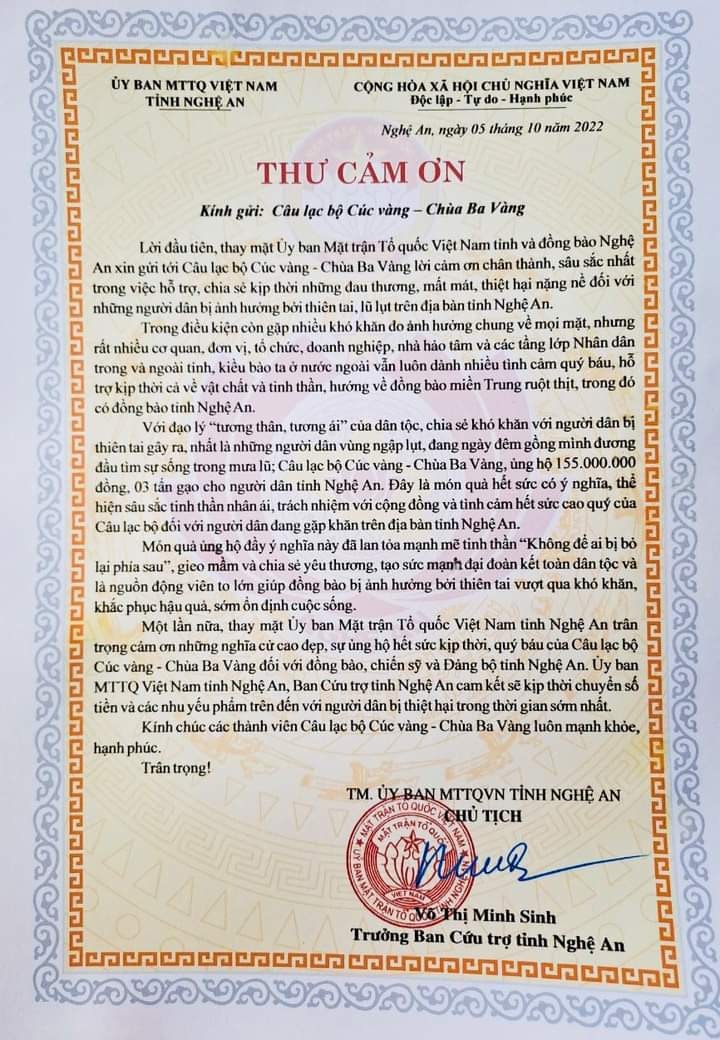 ỦY BAN MTTQ VIỆT NAM
TỈNH NGHỆ AN
CỘNG HÒA XÃ HỘI CHỦ NGHĨA VIỆT NAM
Độc lập - Tự do - Hạnh phúc
Nghệ An, ngày 05 tháng 10 năm 2022
THƯ CẢM ƠN
Kính gửi: Câu lạc bộ Cúc vàng – Chùa Ba Vàng
Lời đầu tiên, thay mặt Ủy ban Mặt trận Tổ quốc Việt Nam tỉnh và đồng bào Nghệ
An xin gửi tới Câu lạc bộ Cúc vàng - Chùa Ba Vàng lời cảm ơn chân thành, sâu sắc nhất
trong việc hỗ trợ, chia sẻ kịp thời những đau thương, mất mát, thiệt hại nặng nề đối với
những người dân bị ảnh hưởng bởi thiên tai, lũ lụt trên địa bàn tỉnh Nghệ An.
Trong điều kiện còn gặp nhiều khó khăn do ảnh hưởng chung về mọi mặt, nhưng
rất nhiều cơ quan, đơn vị, tổ chức, doanh nghiệp, nhà hảo tâm và các tầng lớp Nhân dân
trong và ngoài tỉnh, kiều bào ta ở nước ngoài vẫn luôn dành nhiều tình cảm quý báu, hỗ
trợ kịp thời cả về vật chất và tinh thần, hướng về đồng bào miền Trung ruột thịt, trong đó
có đồng bào tỉnh Nghệ An.
Với đạo lý “tương thân, tương ái” của dân tộc, chia sẻ khó khăn với người dân bị
thiên tai gây ra, nhất là những người dân vùng ngập lụt, đang ngày đêm gồng mình đương
đầu tìm sự sống trong mưa lũ; Câu lạc bộ Cúc vàng - Chùa Ba Vàng, ủng hộ 155.000.000
đồng, 03 tấn gạo cho người dân tỉnh Nghệ An. Đây là món quà hết sức có ý nghĩa, thể
hiện sâu sắc tinh thần nhân ái, trách nhiệm với cộng đồng và tình cảm hết sức cao quý của
Câu lạc bộ đối với người dân đang gặp khăn trên địa bàn tỉnh Nghệ An.
Món quà ủng hộ đầy ý nghĩa này đã lan tỏa mạnh mẽ tinh thần “Không để ai bị bỏ
lại phía sau”, gieo mầm và chia sẻ yêu thương, tạo sức mạnh đại đoàn kết toàn dân tộc và
là nguồn động viên to lớn giúp đồng bào bị ảnh hưởng bởi thiên tai vượt qua khó khăn,
khắc phục hậu quả, sớm ổn định cuộc sống.
Một lần nữa, thay mặt Ủy ban Mặt trận Tổ quốc Việt Nam tỉnh Nghệ An trân
trọng cảm ơn những nghĩa cử cao đẹp, sự ủng hộ hết sức kịp thời, quý báu của Câu lạc bộ
Cúc vàng - Chùa Ba Vàng đối với đồng bào, chiến sỹ và Đảng bộ tỉnh Nghệ An. Ủy ban
MTTQ Việt Nam tỉnh Nghệ An, Ban Cứu trợ tỉnh Nghệ An cam kết sẽ kịp thời chuyển số
tiền và các nhu yếu phẩm trên đến với người dân bị thiệt hại trong thời gian sớm nhất.
Kính chúc các thành viên Câu lạc bộ Cúc vàng - Chùa Ba Vàng luôn mạnh khỏe,
hạnh phúc.
Trân trọng!
TM. ỦY BAN MTTQVN TỈNH NGHỆ AN
CHỦ TỊCH
MẶT TRẬN TỔ QUỐC VIỆT NAM
MẶT TRẬN TỔ QUỐC
VIỆT NAM
ỦY BAN MẶT TRẬN TỔ QUỐC TỈNH NGHỆ AN
Võ Thị Minh Sinh
Trưởng Ban Cứu trợ tỉnh Nghệ An